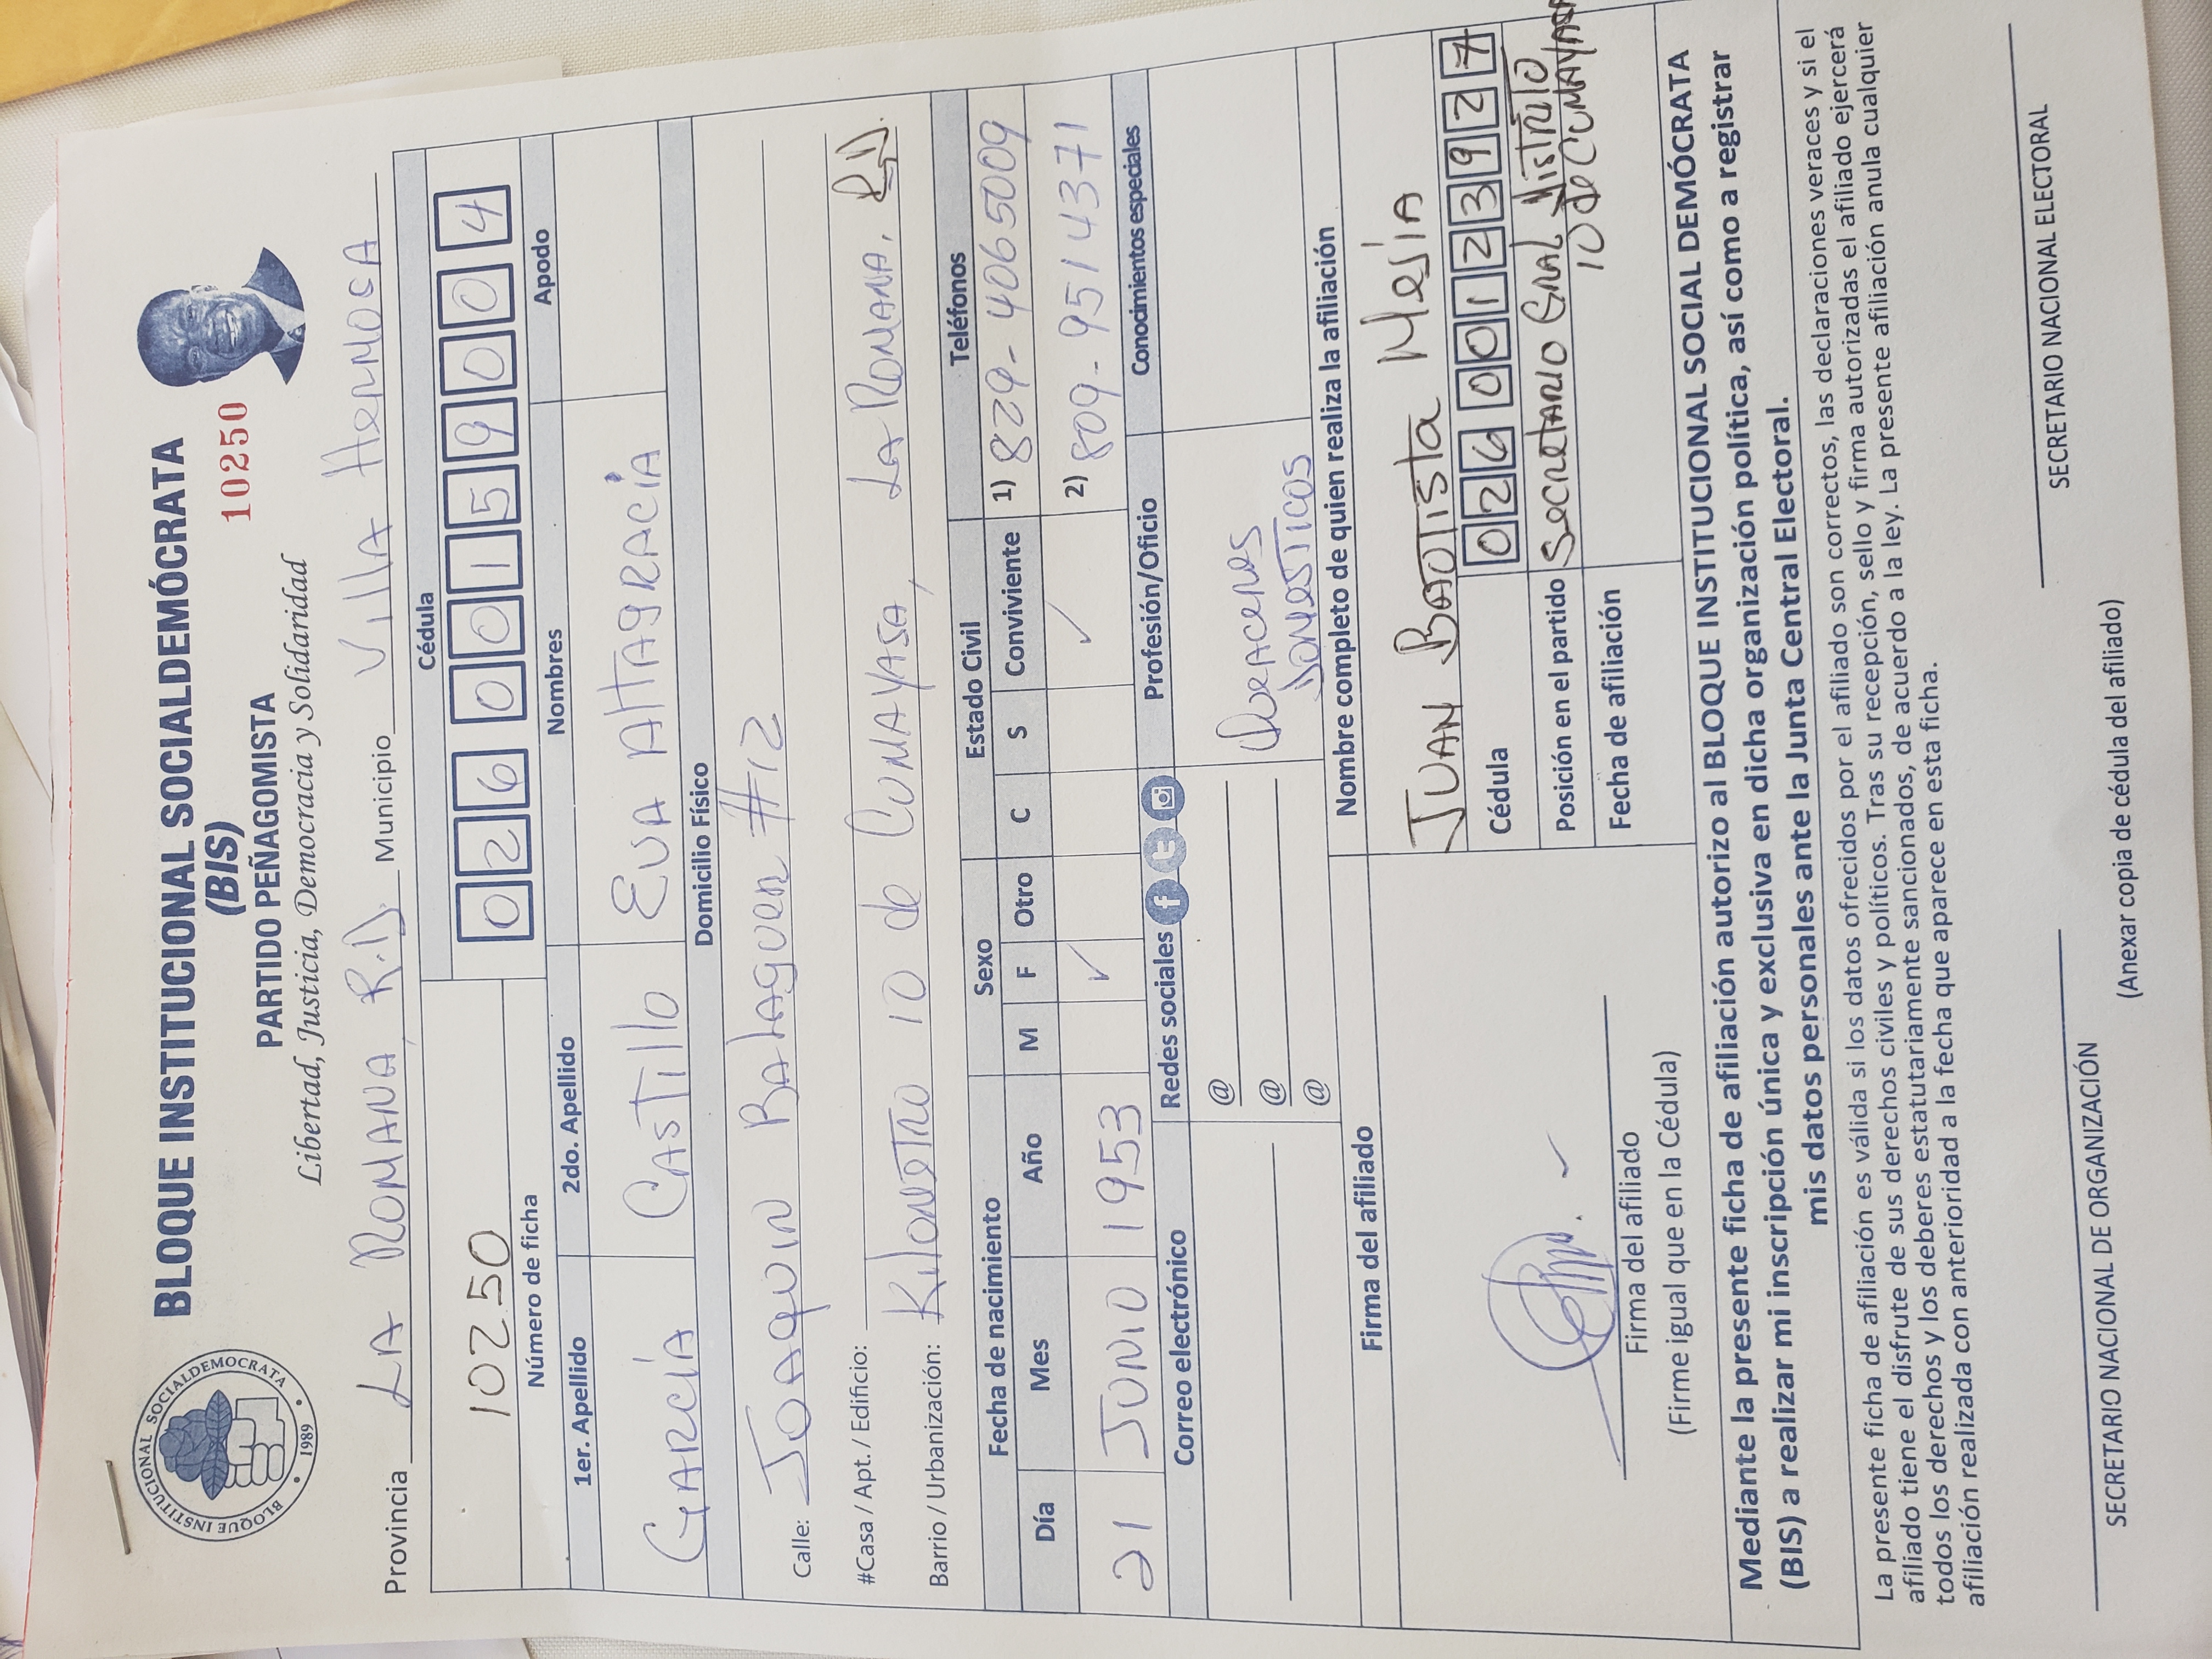 BLOQUE INSTITUCIONAL SOCIALDEMOCRATA
1989
BLOQUE INSTITUCIONAL SOCIALDEMÓCRATA
(BIS)
PARTIDO PEÑAGOMISTA
10250
Libertad, Justicia, Democracia y Solidaridad
Provincia LA ROMANA, R.D. Municipio Villa Hermosa
10250
Número de ficha
Cédula
026 0015900 4
1er. Apellido 2do. Apellido Nombres Apodo
GARCÍA CASTILLO EVA AltAgRACIA
Domicilio Físico
Calle: JOAQUIN BALAGUER #12
#Casa / Apt. / Edificio:
Barrio / Urbanización: Kilometro 10 de CUMAYASA, LA ROMANA, R.D.
Fecha de nacimiento Sexo Estado Civil Teléfonos
Día Mes Año M F Otro C S Conviviente 1) 829-4065009
21 JUNIO 1953 ✓ ✓ 2) 809-9514371
Correo electrónico Redes sociales Profesión/Oficio Conocimientos especiales
@
@
@
QueAceres
Domesticos
Firma del afiliado Nombre completo de quien realiza la afiliación
JUAN BAUTISTA MeJÍA
Cédula 026 0012392 7
Posición en el partido Secretario Gral Distrito
10 de CUMAYASA
Fecha de afiliación
Firma del afiliado
(Firme igual que en la Cédula)
Mediante la presente ficha de afiliación autorizo al BLOQUE INSTITUCIONAL SOCIAL DEMÓCRATA
(BIS) a realizar mi inscripción única y exclusiva en dicha organización política, así como a registrar
mis datos personales ante la Junta Central Electoral.
La presente ficha de afiliación es válida si los datos ofrecidos por el afiliado son correctos, las declaraciones veraces y si el
afiliado tiene el disfrute de sus derechos civiles y políticos. Tras su recepción, sello y firma autorizadas el afiliado ejercerá
todos los derechos y los deberes estatutariamente sancionados, de acuerdo a la ley. La presente afiliación anula cualquier
afiliación realizada con anterioridad a la fecha que aparece en esta ficha.
SECRETARIO NACIONAL DE ORGANIZACIÓN SECRETARIO NACIONAL ELECTORAL
(Anexar copia de cédula del afiliado)